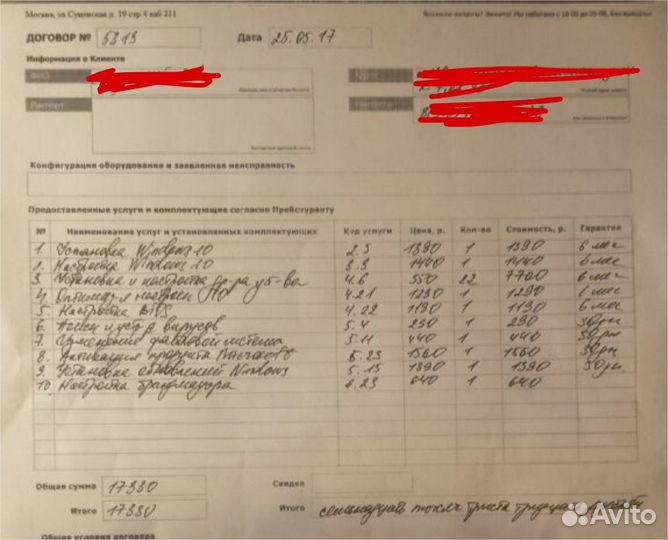 Москва, ул Сущевская д. 19 стр 4 каб 211
Возникли вопросы? Звоните! Мы работаем с 10:00 до 20:00, без выходных
ДОГОВОР № 5313 Дата 25.05.17
Информация о Клиенте
ФИО
Адрес
Паспорт
Конфигурация оборудования и заявленная неисправность
Предоставленные услуги и комплектующие согласно Прейскуранту
№ Наименование услуг и установленных комплектующих Код услуги Цена, р. Кол-во Стоимость, р. Гарантия
1. Установка Windows 10 2.3 1390 1 1390 6 мес
2. Настройка Windows 10 3.3 1440 1 1440 6 мес
3 Установка и настройка др-ра ус-ва 4.6 550 22 7700 6 мес
4. настрой 4.21 1290 1 1290 6 мес
5. Настройка BIOS 4.22 1190 1 1190 6 мес
6 вирусов 5.4 290 1 290 30дн
7 файловой системы 5.11 440 1 440 30дн
8. Активация продукта 5.23 1560 1 1560 30дн
9. Установка обновлений Windows 5.15 1390 1 1390 30дн
10 Настройка брандмауэра 6.23 640 1 640
Общая сумма 17330 Скидка
Итого 17330 Итого семнадцать тысяч триста тридцать рублей
Общие условия договора
Avito